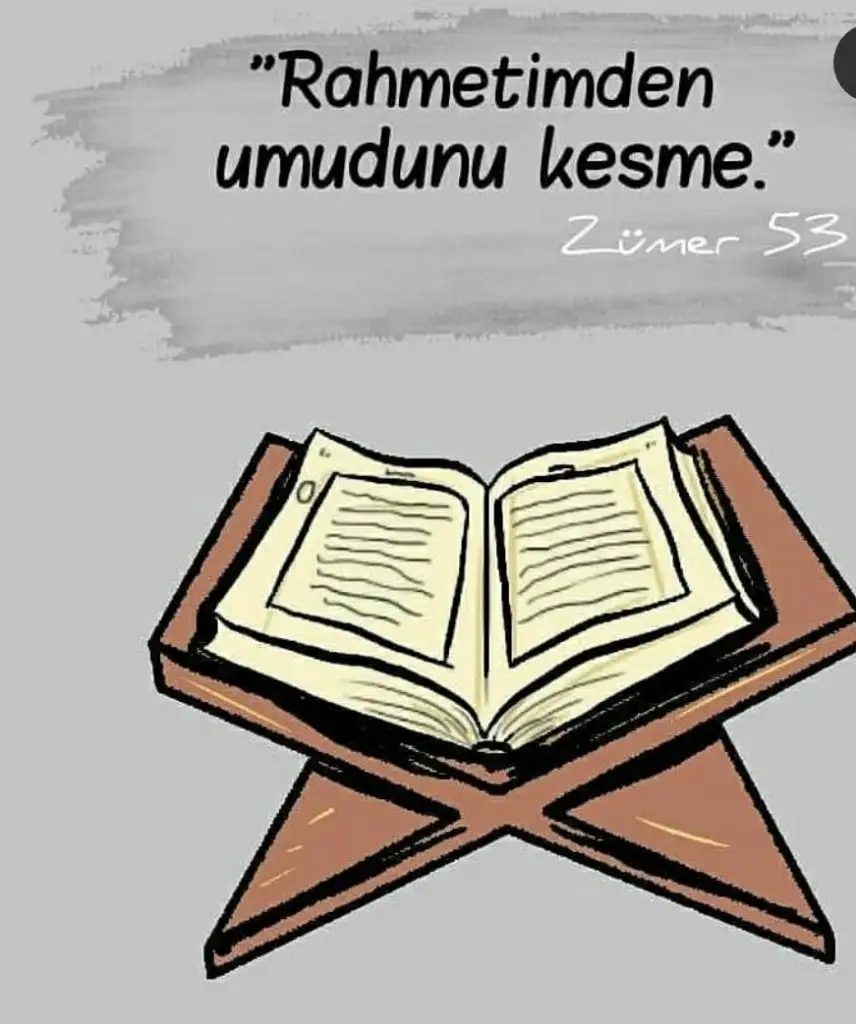 ”Rahmetimden
umudunu kesme.”
Zümer 53